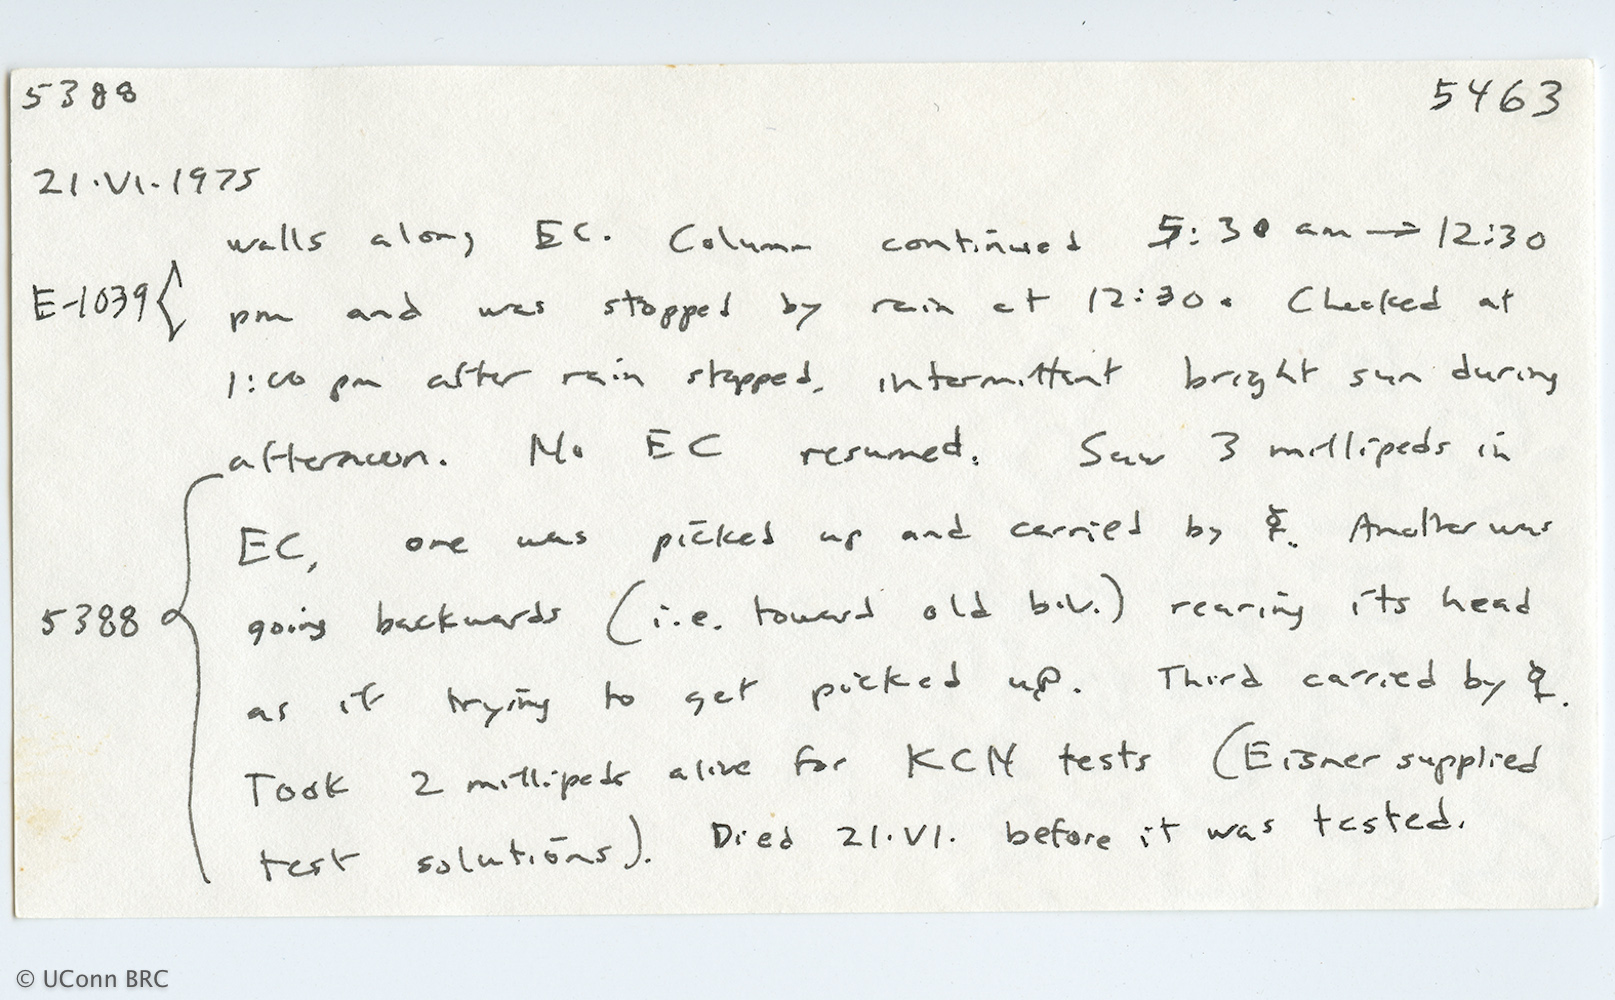 5388 5463
21.VI.1975
walls along EC. Column continued 5:30 am → 12:30
E-1039 { pm and was stopped by rain at 12:30. Checked at
1:00 pm after rain stopped, intermittent bright sun during
afternoon. No EC resumed. Saw 3 millipeds in
EC, one was picked up and carried by ☿. Another was
5388 { going backwards (i.e. toward old biv.) rearing its head
as if trying to get picked up. Third carried by ☿.
Took 2 millipeds alive for KCN tests (Eisner supplied
test solutions). Died 21.VI. before it was tested.
© UConn BRC